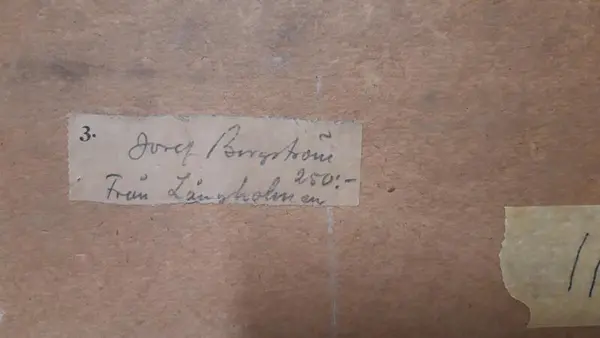 3.
Josef Bergström
250:-
Från Långholmen
11